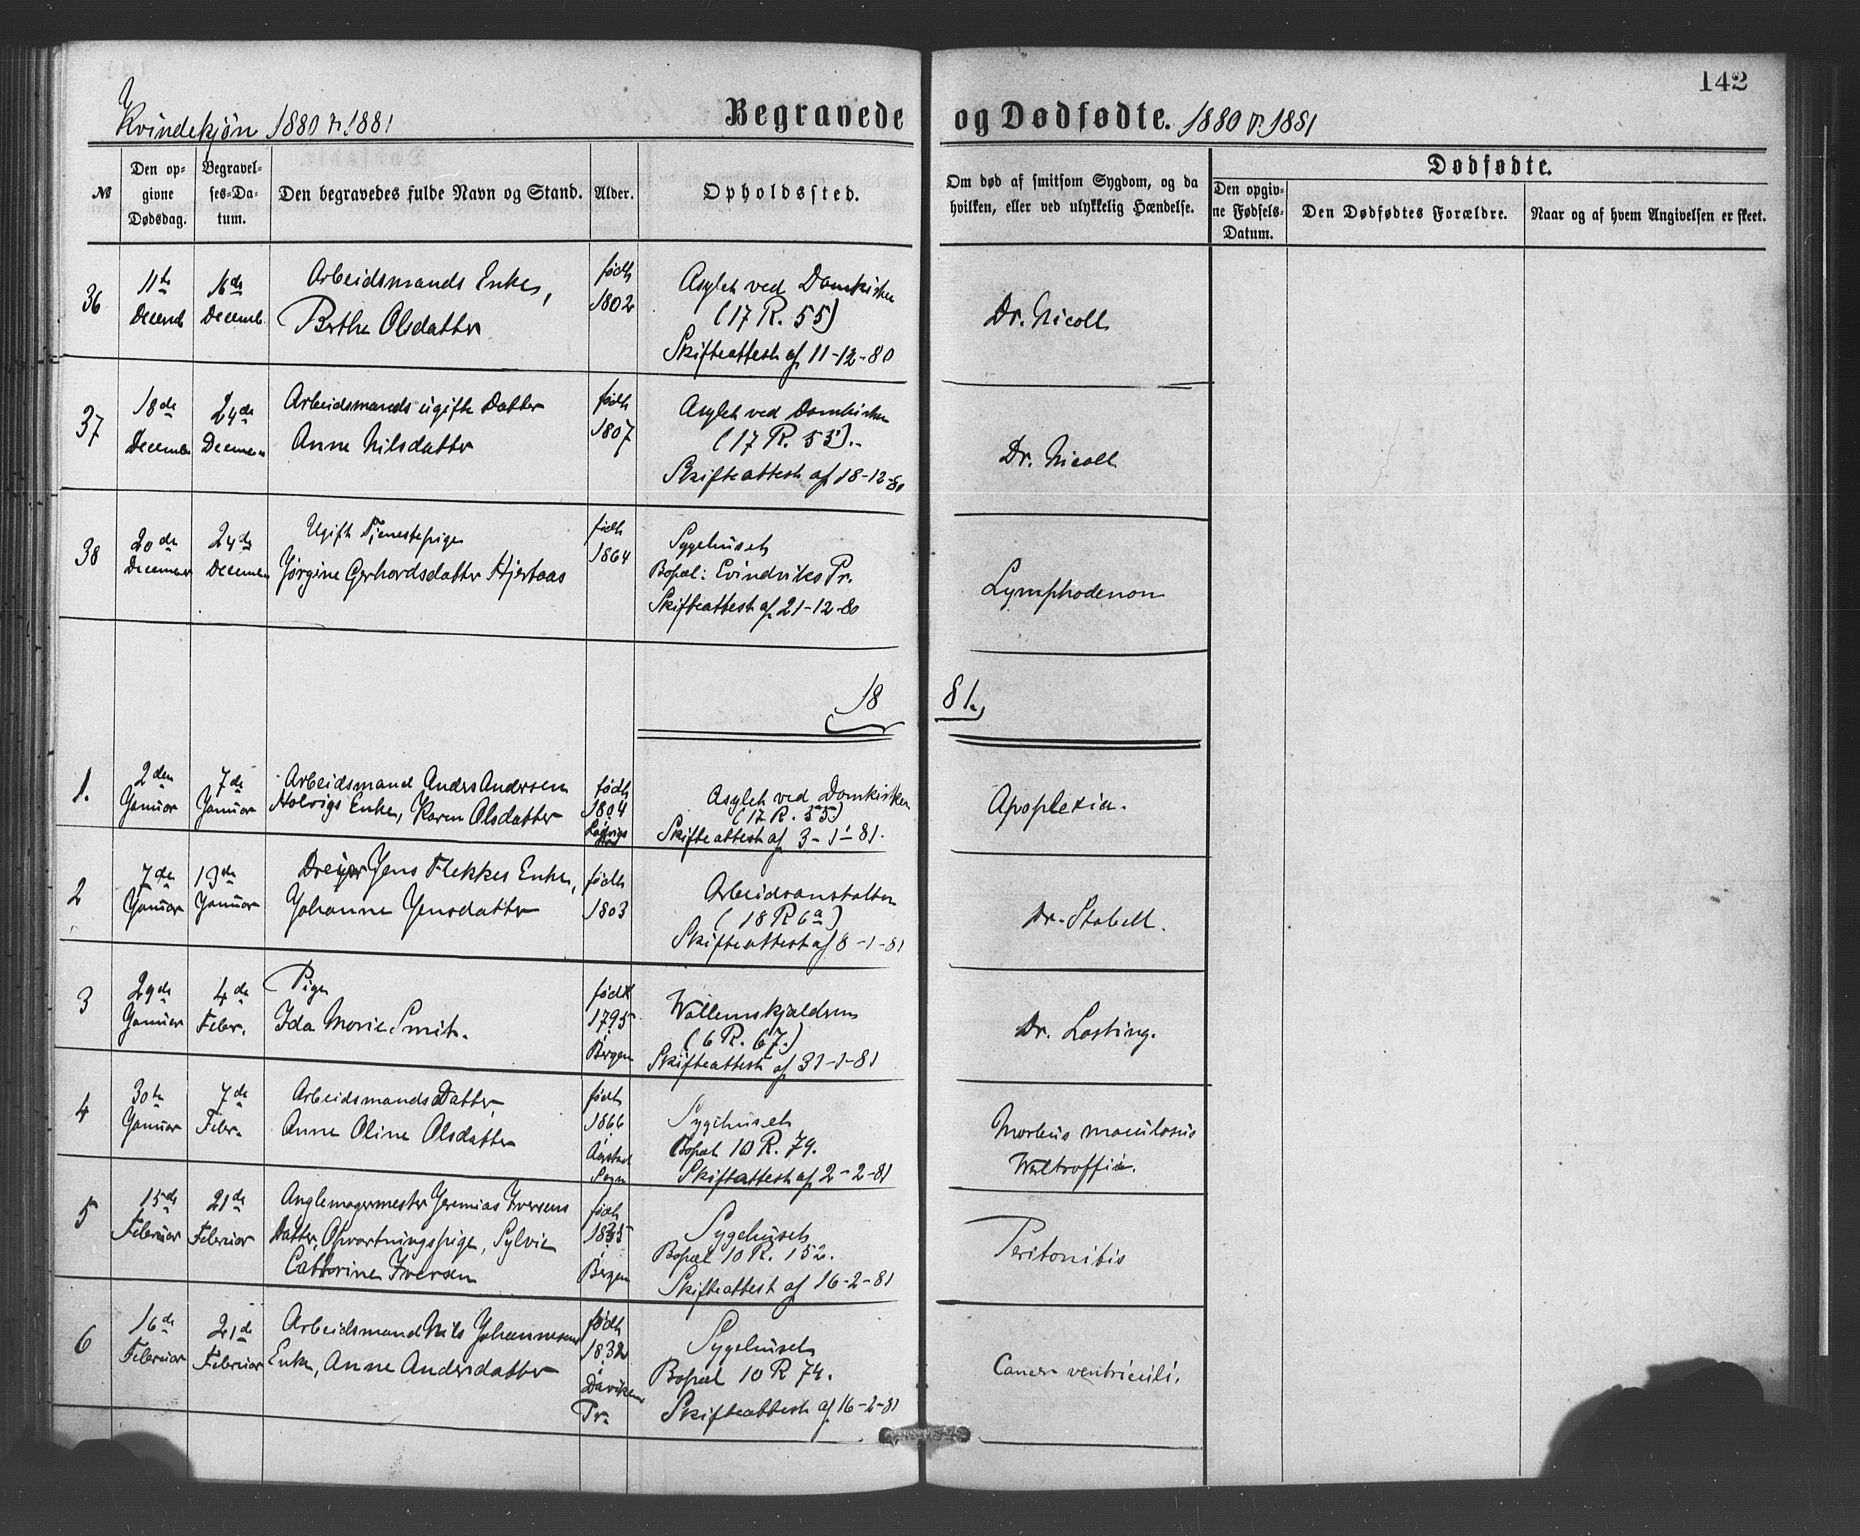 142
Kvindekjøn 1880 & 1881
Begravede og Dødfødte. 1880 & 1881
№
Den opgivne Dødsdag.
Begravelses-Datum.
Den begravedes fulde Navn og Stand.
Alder.
Opholdssted.
Om død af smitsom Sygdom, og da hvilken, eller ved ulykkelig Hændelse.
Dødfødte.
Den opgivne Fødsels-Datum.
Den Dødfødtes Forældre.
Naar og af hvem Angivelsen er skeet.
36
11te
Decemb
16de
Decemb.
Arbeidsmands Enke,
Berthe Olsdatter
født
1802
Asylet ved Domkirken
(17 R. 55)
Skifteattest af 11-12-80
Dr. Nicoll
37
18de
December
24de
December
Arbeidsmands ugifte Datter
Anne Nilsdatter
født
1807
Asylet ved Domkirken
(17 R. 55).
Skifteattest af 18-12-80
Dr. Nicoll
38
20de
December
24de
December
Ugift Tjenestepige
Jørgine Gerhardsdatter Hjertaas
født
1864
Sygehuset
Bopæl: Evindviks Pr.
Skifteattest af 21-12-80
Lymphodenom
18 81.
1.
2den
Januar
7de
Januar
Arbeidsmand Anders Andersen
Holvigs Enke, Karen Olsdatter
født
1804
Asylet ved Domkirken
(17 R. 55)
Skifteattest af 3-1-81.
Apoplexia.
2
7de
Januar
13de
Januar
Dreyer Jens Flekkes Enke,
Johanne Jensdatter
født
1803
Arbeidsanstalten
(18 R 6a)
Skifteattest af 8-1-81
Dr. Stabell.
3
29de
Januar
4de
Febr.
Pige
Ida Marie Smit.
født
1795
Bergen
Wallemskjælderen
(6 R. 67.)
Skifteattest af 31-1-81
Dr. Lasting.
4
30te
Januar
7de
Febr.
Arbeidsmands Datter,
Anne Oline Olsdatter
født
1866
Sogn
Sygehuset
Bopæl 10 R. 79.
Skifteattest af 2-2-81
Morbus maculosus
Werlhoffii.
5
15de
Februar
21de
Februar
Anglemagermester Jeremias Iversens
Datter, Opvartningspige, Sylvie
Cathrine Iversen
født
1835
Bergen
Sygehuset
Bopæl 10 R. 152.
Skifteattest af 16-2-81
Peritonitis
6
16de
Februar
21de
Februar
Arbeidsmand Nils Johannesens
Enke, Anne Andersdatter
født
1832
Davikens
Pr.
Sygehuset
Bopæl 10 R 74.
Skifteattest af 16-2-81
Cancer ventriculi.